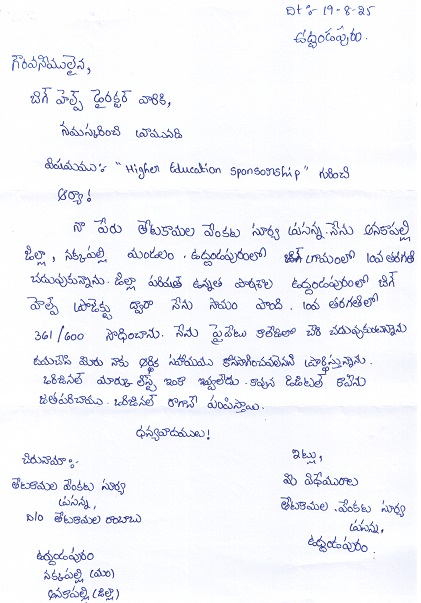 Dt :- 19-8-25
ఉద్దండపురం.
గౌరవనీయులైన,
బిగ్ హెల్ప్ డైరక్టర్ వారికి,
నమస్కరించి వ్రాయునది
విషయము :- "Higher Education Sponsorship" గురించి
ఆర్యా!
నా పేరు తోటకామల వెంకట సూర్య ప్రసన్న. నేను అనకాపల్లి
జిల్లా, నక్కపల్లి మండలం. ఉద్దండపురంలో బిగ్ గ్రామంలో 10వ తరగతి
చదువుకున్నాను. జిల్లా పరిషత్ ఉన్నత పాఠశాల ఉద్దండపురంలో బిగ్
హెల్ప్ ప్రోజెక్టు ద్వారా నేను సాయం పొంది. 10వ తరగతిలో
361/600 సాధించాను. నేను ప్రైవేటు కాలేజిలో చేరి చదువుకుంటున్నాను
దయచేసి మీరు నాకు ఆర్థిక సహాయము కొనసాగించవలెనని ప్రార్థిస్తున్నాను.
ఒరిజినల్ మార్కు లిస్ట్ ఇంకా ఇవ్వలేదు. కావున డిజిటల్ కాపీను
జతపరిచాము. ఒరిజినల్ రాగానే పంపిస్తాము.
ధన్యవాదములు!
చిరునామా :-
తోటకామల వెంకట సూర్య
ప్రసన్న,
D/O తోటకామల రాంబాబు
ఉద్దండపురం
నక్కపల్లి (మం)
అనకాపల్లి (జిల్లా)
ఇట్లు,
మీ విధేయురాలు
తోటకామల. వెంకట సూర్య
ప్రసన్న,
ఉద్దండపురం.